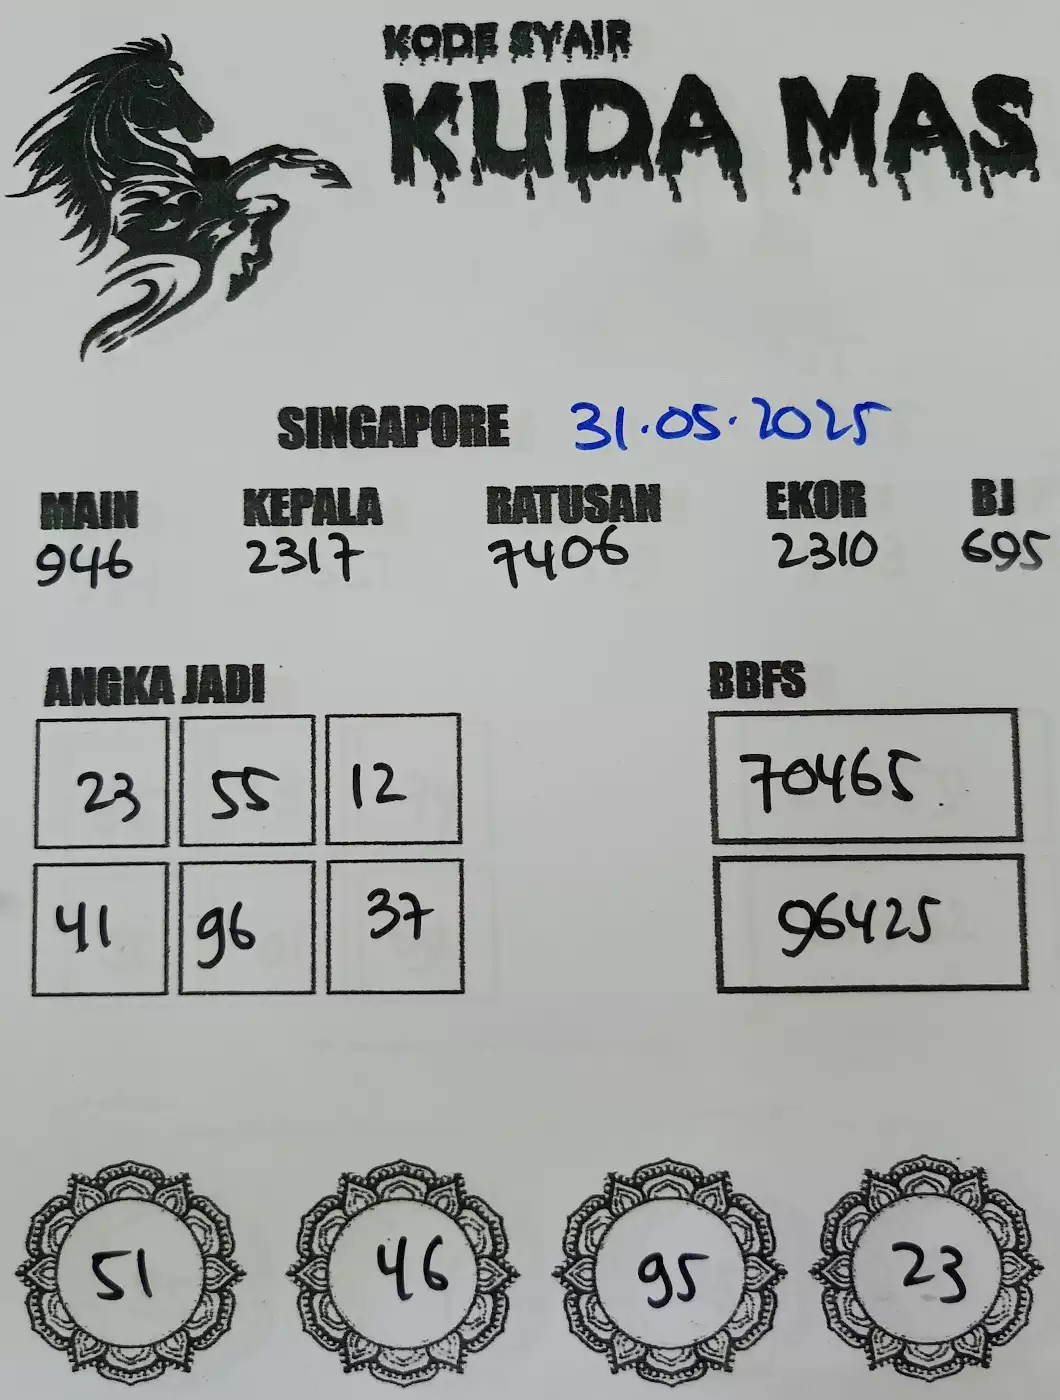 KODE SYAIR
KUDA MAS
SINGAPORE 31.05.2025
MAIN KEPALA RATUSAN EKOR BJ
946 2317 7406 2310 695
ANGKA JADI BBFS
23 55 12 70465
41 96 37 96425
51 46 95 23